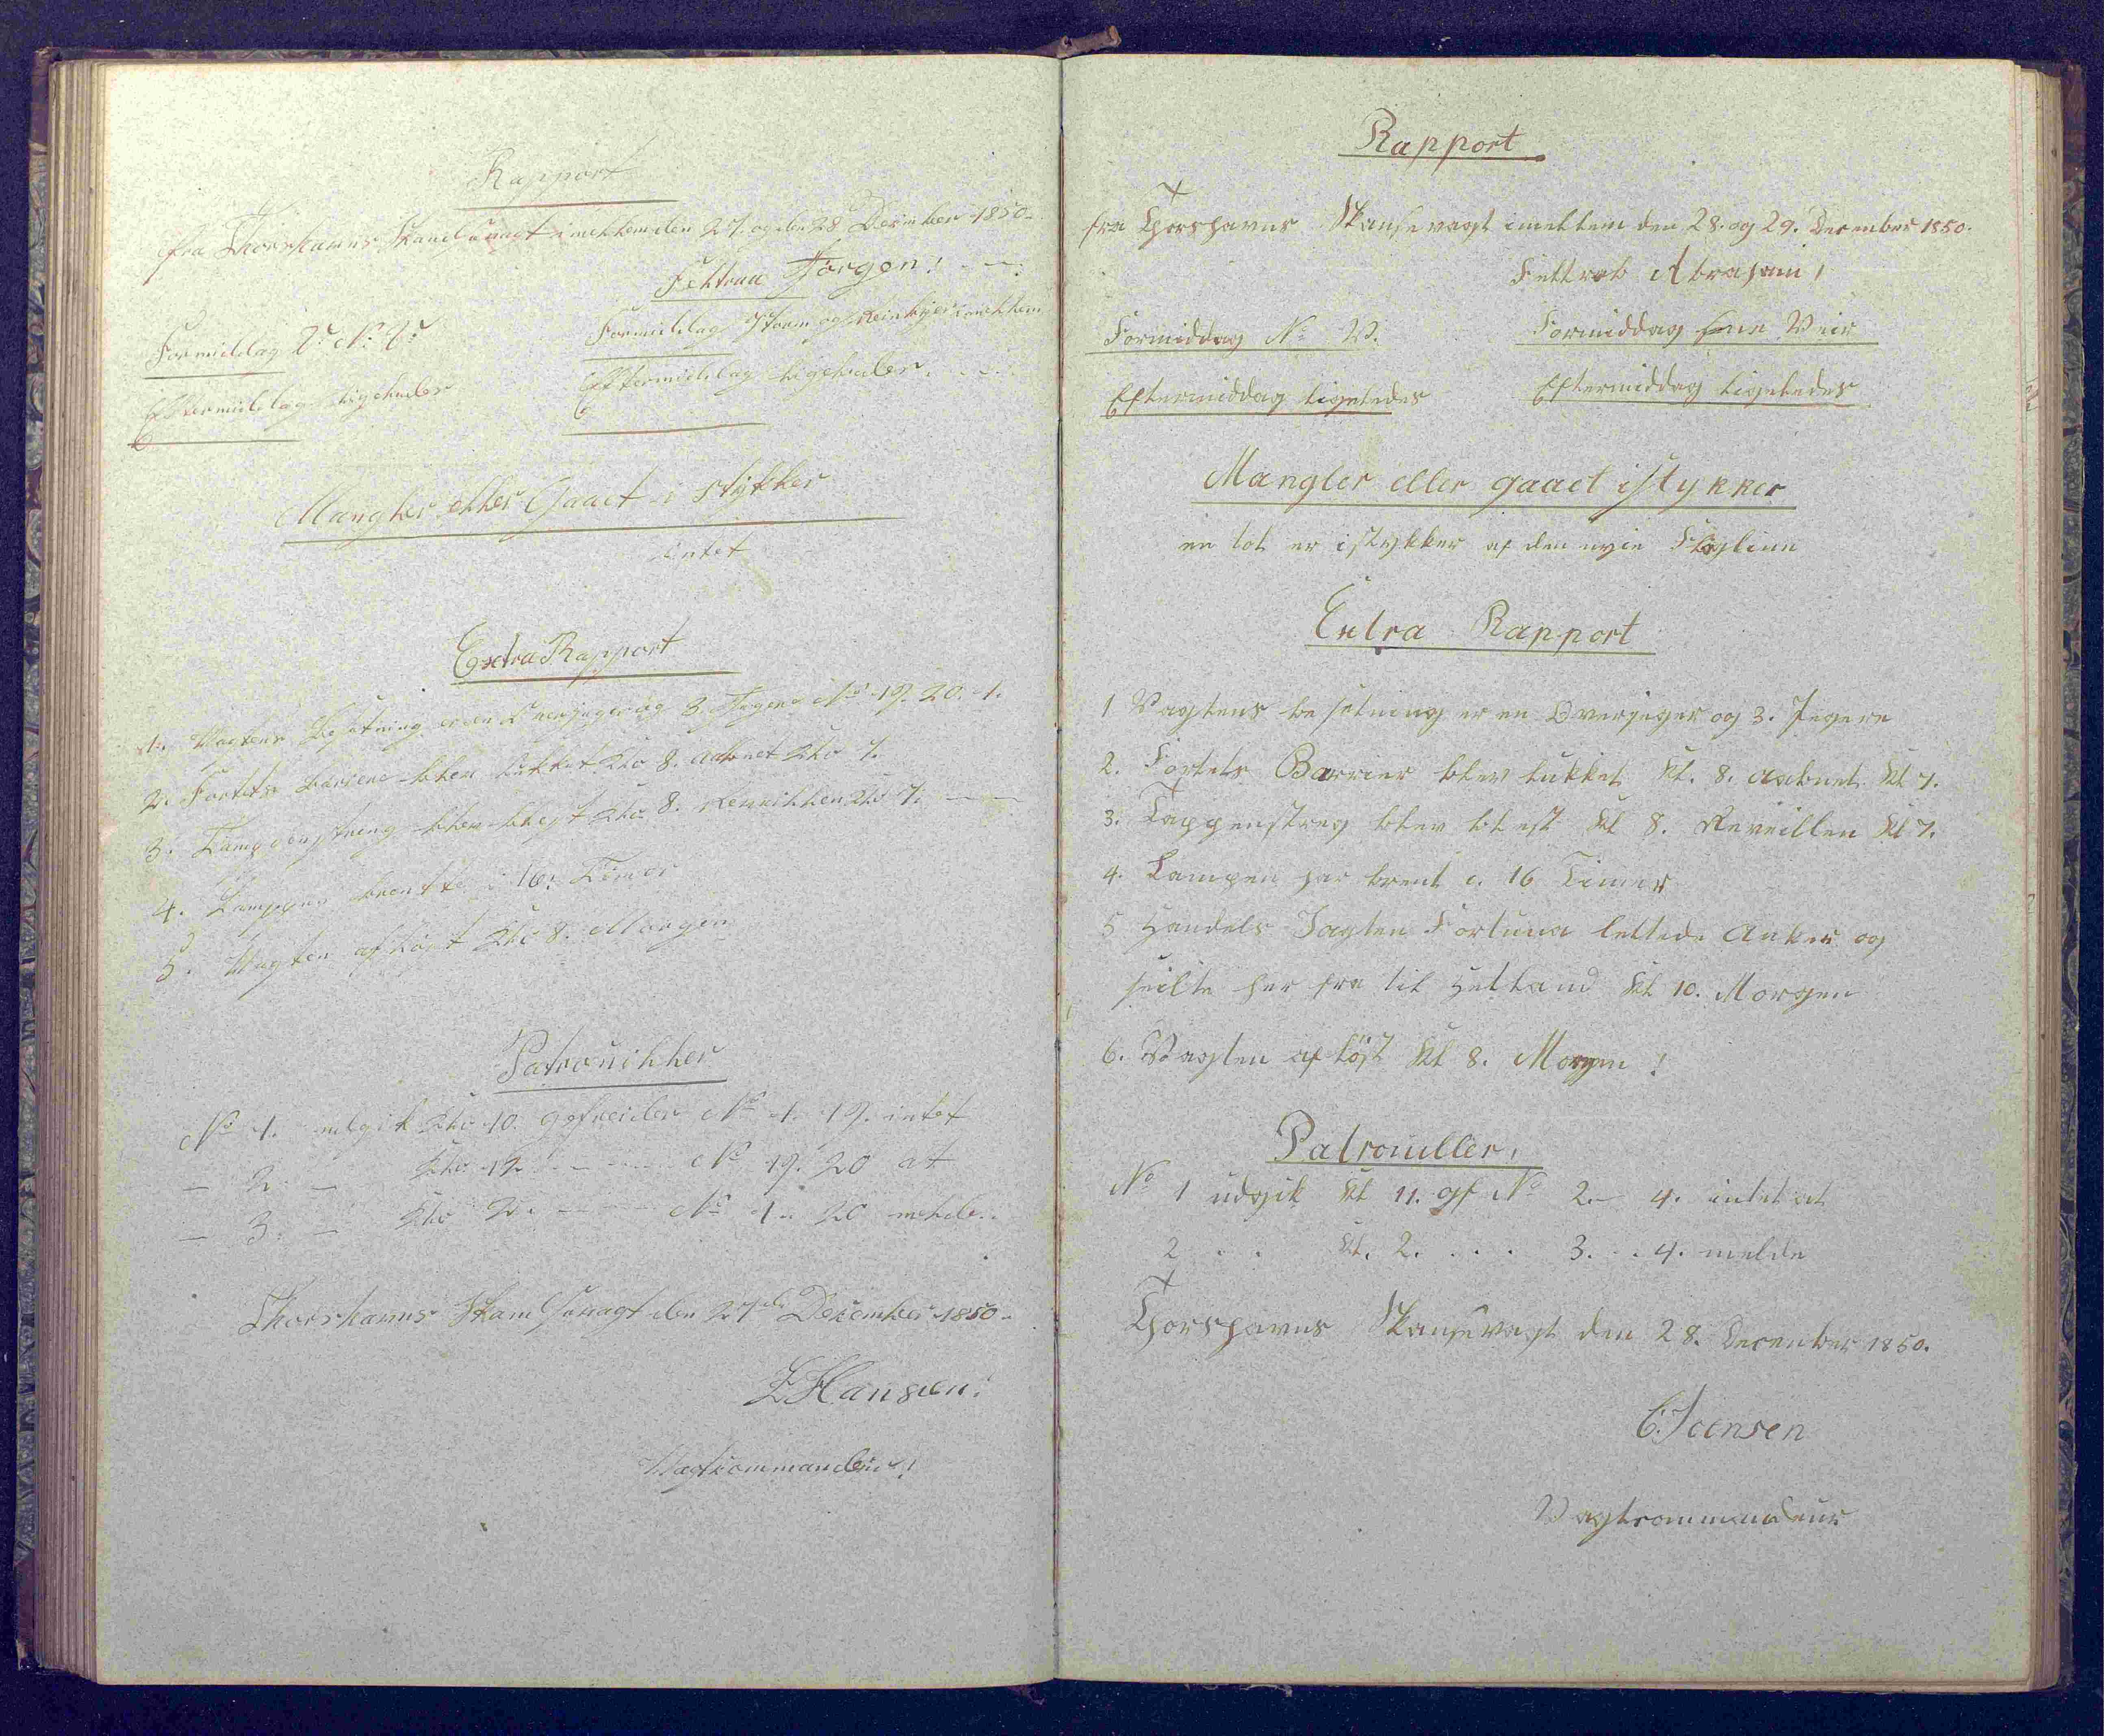 Rapport
fra Thorshavns Skandsevagt imellem den 27. og den 28 December 1850.
Feltraa Jörgen!
Formiddag V. N. V.
Formiddag Storm og Reinbyer imellem
Eftermiddag ligeledes
Eftermiddag ligeledes.
Mangler eller Gaaet i stykker
intet
Extra Rapport
1. Vagtens besætning er en Overjæger og 3 Jægere No 19. 20. 1.
2. Fortets barriere blev lukket Klo 8. aabnet Klo 7.
3. Tampenstreng blev blæst Klo 8. Reveillen Klo 7.
4. Lampen brentte i 16. Timer
5. Vagten aflöst Klo 8. Morgen
Patrouiller
No 1. udgik Klo 10. gefreider No 1. 19. intet
– 2. – Klo 12. – – – No 19. 20 at
– 3. – Klo 2. – – – No 1. 20 melde.
Thorshavns Skandsevagt den 27de December 1850.
Z Hansen!
Vagtkommandeur!
Rapport
fra Thorshavns Skansevagt imellem den 28. og 29. December 1850.
Feltrob Abraham!
Formiddag N: V.
Formiddag fine Veir
Eftermiddag ligeledes
Eftermiddag ligeledes
Mangler eller gaaet istykker
en lot er istykker af den nyie Flaglinn
Extra Rapport
1 Vagtens besætning er en Overjeger og 3. Jegere
2. Fortets Barrier blev lukket Kl. 8. aabnet Kl 7.
3. Tappenstreg blev blest Kl 8. Reveillen Kl 7.
4. Lampen har brent i. 16 Timer
5 Handels Jagten Fortuna lettede Anker og
seilte her fra til Hetland Kl 10. Morgen
6. Vagten aflöst Kl 8. Morgen!
Patrouiller.
No 1 udgik Kl 11. gf No 2. – 4. intet at
2 . . Kl. 2. . . . 3. . . 4. melde
Thorshavns Skansevagt den 28. December 1850.
C. Joensen
Vagtcommandeur